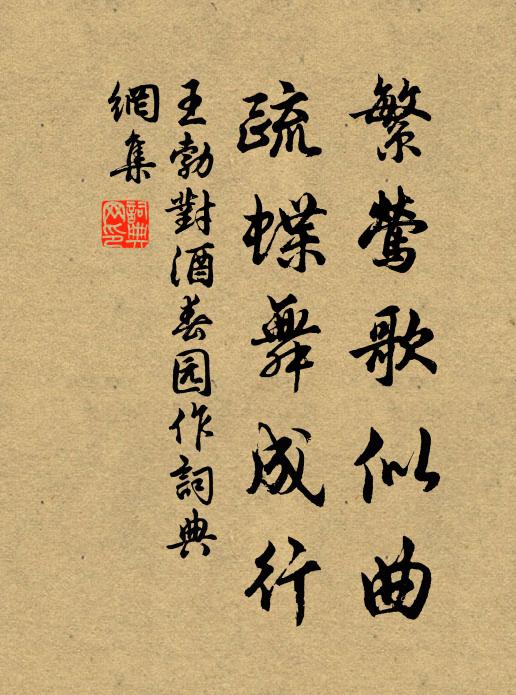 繁莺歌似曲
疏蝶舞成行
王勃對酒春园作詞典
網集
詞典
网印